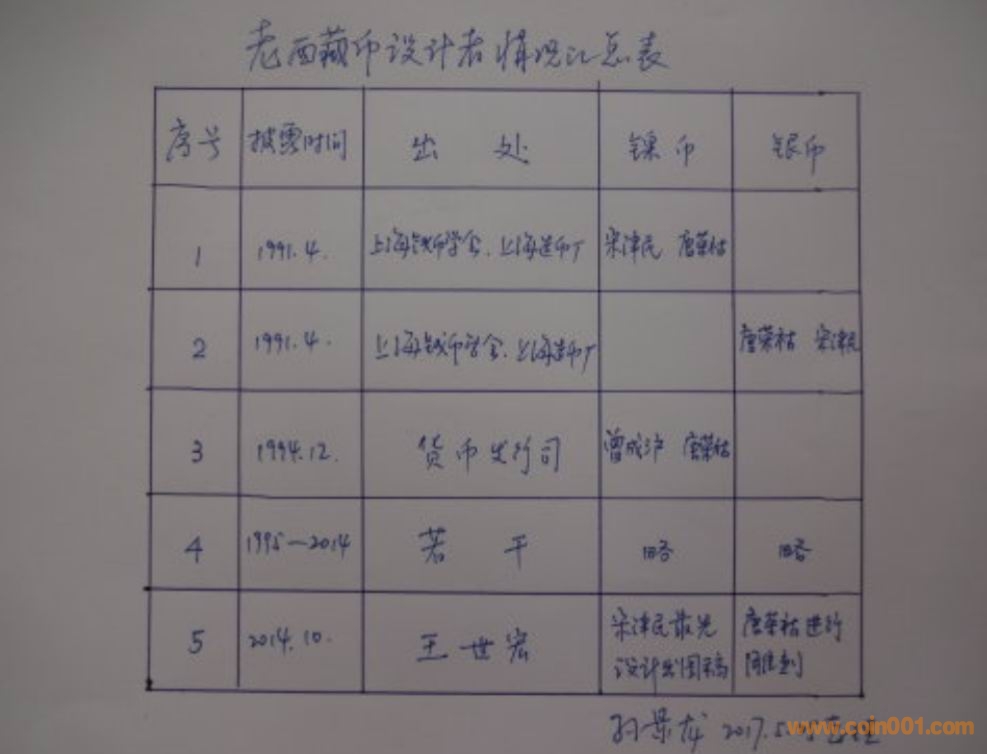 老西藏币设计者情况汇总表
序号 披露时间 出 处 镍币 银币
1 1991.4. 上海钱币学会、上海造币厂 宋津民 唐荣祜
2 1991.4. 上海钱币学会、上海造币厂 唐荣祜 宋津民
3 1994.12. 货币发行司 曾成沪 唐荣祜
4 1995—2014 若 干 略 略
5 2014.10. 王世宏 宋津民最先 唐荣祜进行
设计出图稿 雕刻
孙景龙 2017.5
www.coin001.com